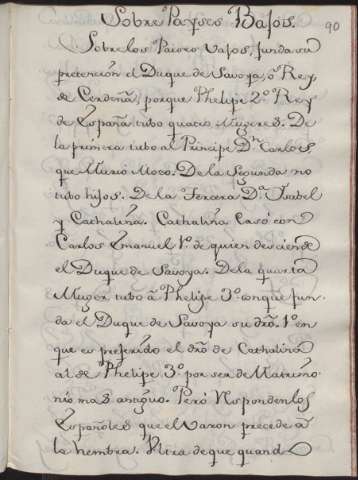 Sobre Payses Bajos.
90
Sobre los Paises Vajos, funda su
pretencion el Duque de Savoya, ô Rey
de Cerdeña, porque Phelipe 2º Rey
de España tubo quatro Mugeres. De
la primera tubo al Principe Dn. Carlos
que Murio Moco. De la Segunda no
tubo hijos. De la Tercera Da. Isabel
y Cathalina. Cathalina Casó con
Carlos Emanuel 1º de quien desciende
el Duque de Savoya. De la quarta
Muger tubo â Phelipe 3º conque fun-
da el Duque de Savoya su dro. 1º en
que es preferido el dro de Cathalina
al de Phelipe 3º por ser de Matrimo
nio mas antiguo. Peró Responden los
Españoles que el Varon precede â
la hembra. fuera de que quando